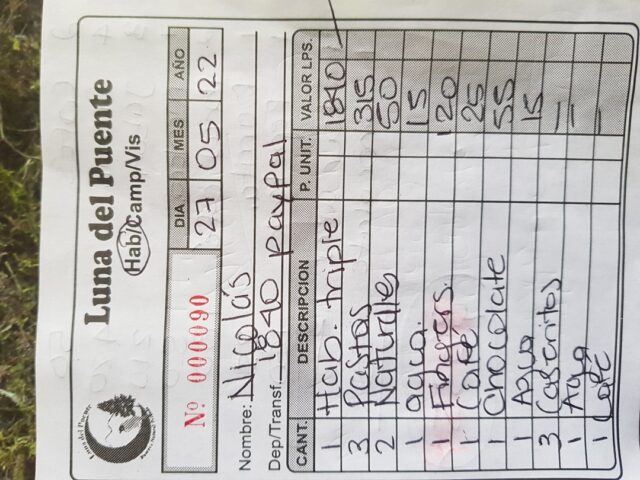 Luna del Puente
Hab/Camp/Vis
Luna del Puente
Nº 000090
DIA MES AÑO
27 05 22
Nombre: Nicolás
Dep/Transf. 1840 paypal
CANT. DESCRIPCION P. UNIT. VALOR LPS.
1 Hab. triple 1840
3 Pastas 315
2 Naturales 50
1 agua. 15
1 Fingers. 120
1 Cafe. 25
1 Chocolate 55
1 Agua 15
3 Caseritos =
1 Agua =
1 Cafe –